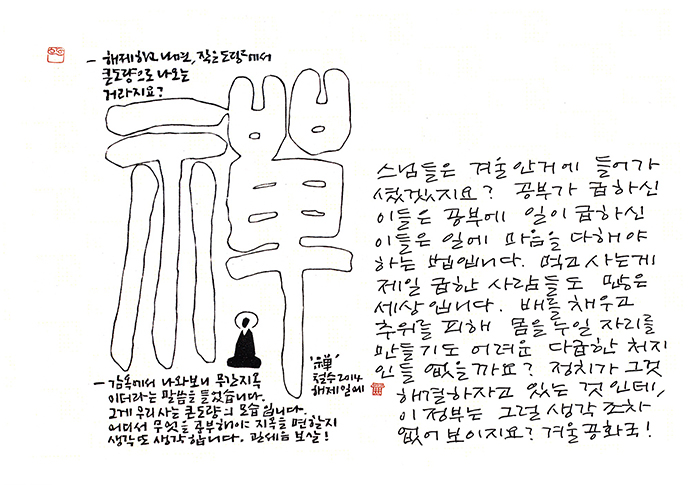 - 해제하고 나면, 작은도량에서
큰도량으로 나오는
거라지요?
禪
- 감옥에서 나와보니 무간지옥
이더라는 말씀을 들었습니다.
그게 우리 사는 큰도량의 모습입니다.
어디서 무엇을 공부해야 지옥을 면할지
생각또 생각합니다. 관세음 보살!
'禪'
철수 2014
해제일에
스님들은 겨울안거에 들어가
셨겠지요? 공부가 급하신
이들은 공부에 일이 급하신
이들은 일에 마음을 다해야
하는 법입니다. 먹고 사는게
제일 급한 사람들도 많은
세상입니다. 배를 채우고
추위를 피해 몸을 누일 자리를
만들기도 어려운 다급한 처지
인들 없을까요? 정치가 그것
해결하자고 있는 것인데,
이 정부는 그럴 생각 조차
없어 보이지요? 겨울 공화국!